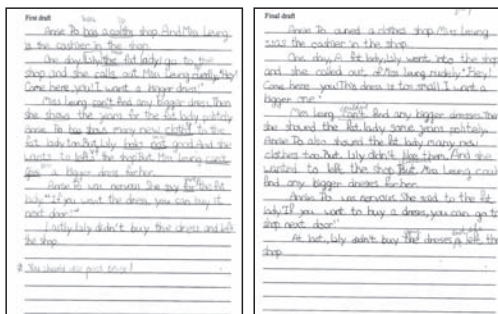 First draft
Annie Po has a cloths shop. And Miss Leung
is the cashier in the shop.
One day, Lily, the fat lady go to the
shop and she calls out Miss Leung rudely, "Hey!
Come here you! I want a bigger dress."
Miss Leung can't find any bigger dress. Then
she shows the jeans for the fat lady politely.
Annie Po has shows many new cloths to the
fat lady too. But Lily looks not good. And she
wants to left the shop. But Miss Leung
a bigger dress for her.
Annie Po was nervous. She say for the fat
lady: "If you want the dress, you can buy it
next door."
Lastly, Lily didn't buy the dress and left
the shop.
You should use past tense!
Final draft
Annie Po owned a clothes shop. Miss Leung
was the cashier in the shop.
One day, A fat lady, Lily went into the shop
and she called out at Miss Leung rudely, "Hey!
Come here you! This dress is too small. I want a
bigger one."
Miss Leung can't find any bigger dresses. Then
couldn't
she showed the fat lady some jeans politely.
Annie Po also showed the fat lady many new
clothes too. But Lily didn't like them. And she
wanted to left the shop. But Miss Leung could
find any bigger dresses for her.
Annie Po was nervous. She said to the fat
lady, "If you want to buy a dress, you can go to
shop next door."
At last, Lily didn't buy the dresses left the
shop.